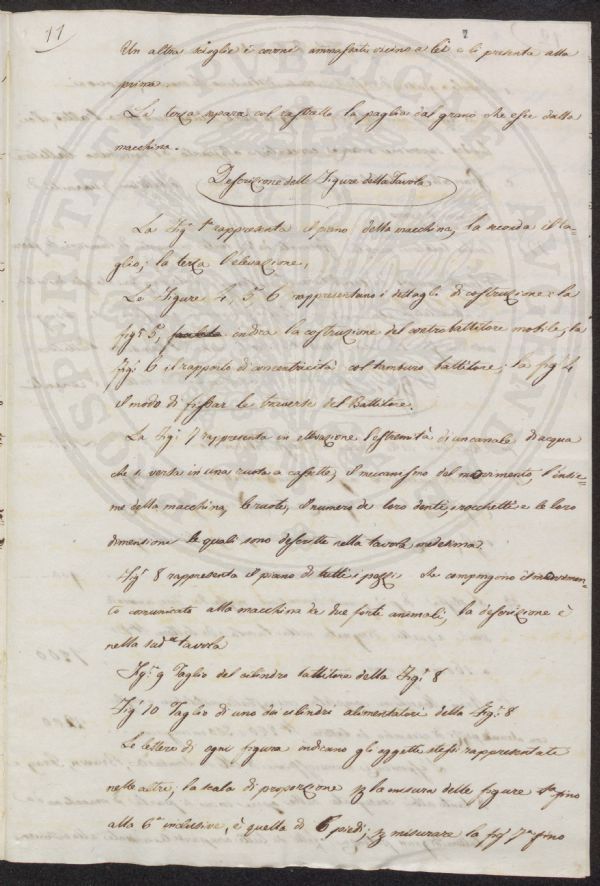 11
7
Un altra scioglie i covoni ammassati vicino a lei e li presenta alla
prima.
La terza separa col rastello la paglia dal grano che esce dalla
macchina.
Descrizione delle Figure della Tavola
La Figª 1ª rappresenta il piano della macchina, la seconda il ta=
glio; la terza l'elevazione,
Le Figure 4, 5 6 rappresentano i dettagli di costruzione: la
figª 5, indica la costruzione del controbattitore mobile, la
figª 6 il rapporto di concentricità col tamburo battitore; la figª 4
il modo di fissar le traverse del Battitore.
La Figª 7 rappresenta in ellevazione l'estremità di un canale di acqua
che si versa in una ruota a cassette, il mecanismo del movimento, l'insie=
me della macchina, le ruote, il numero de loro denti, i rochetti e le loro
dimensioni le quali sono descritte nella tavola medesima.
Figª 8 rappresenta il piano di tutti i pezzi che compongono il movimen=
to comunicato alla macchina da due forti animali, la descrizione è
nella sudᵗᵃ tavola
Figª 9 Taglio del cilindro battitore della Figª 8
Figª 10 Taglio di uno dei cilindri alimentatori della Figª 8
Le lettere di ogni figura indicano gli oggetti stessi rappresentati
nelle altre, la scala di proporzione la misura delle figure 1ª fino
alla 6ª inclusive, è quella di 6 piedi; misurare la figª 7ª fino